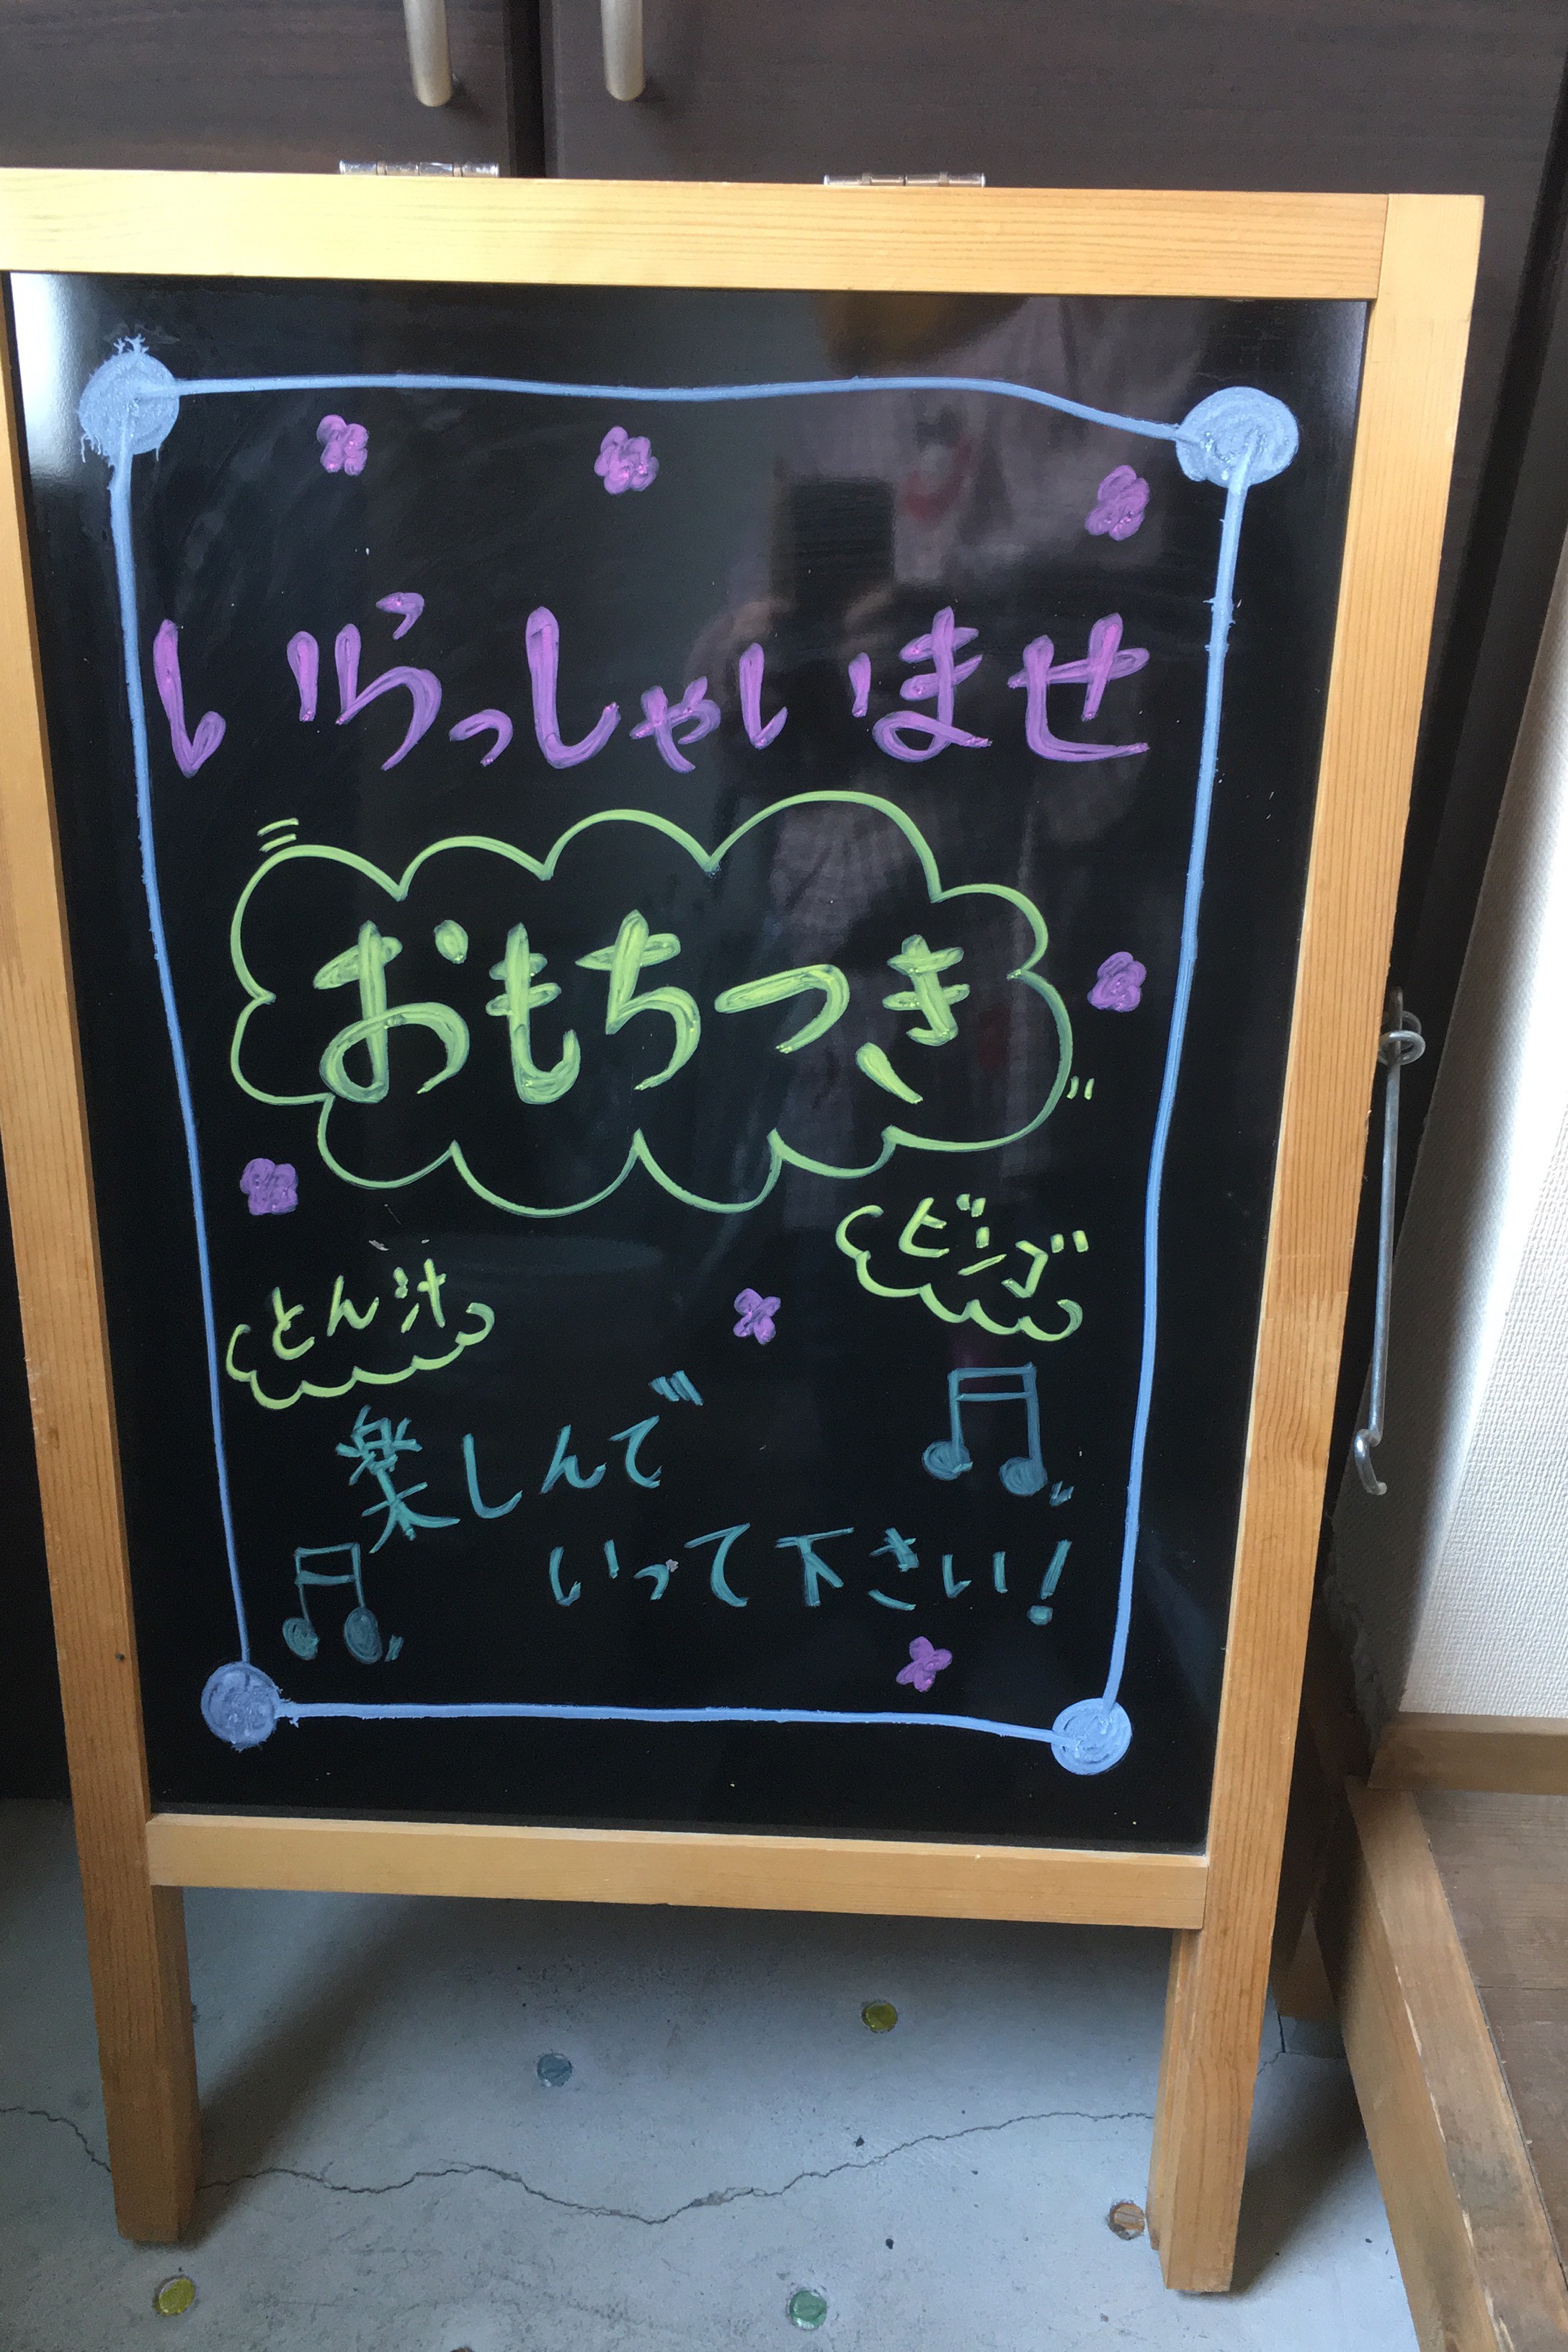 いらっしゃいませ
おもちつき
ビンゴ
とん汁
楽しんで
いって下さい!